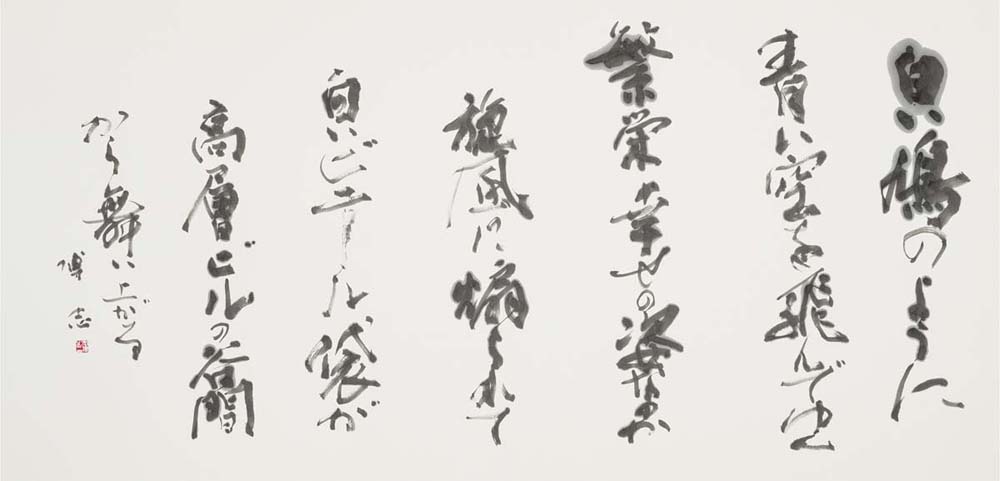 白い鳩のように
青い空を飛んでゆく
繁栄と幸せの姿なのか
旋風に煽られて
白いビニール袋が
高層ビルの谷間
から舞い上がる
博志